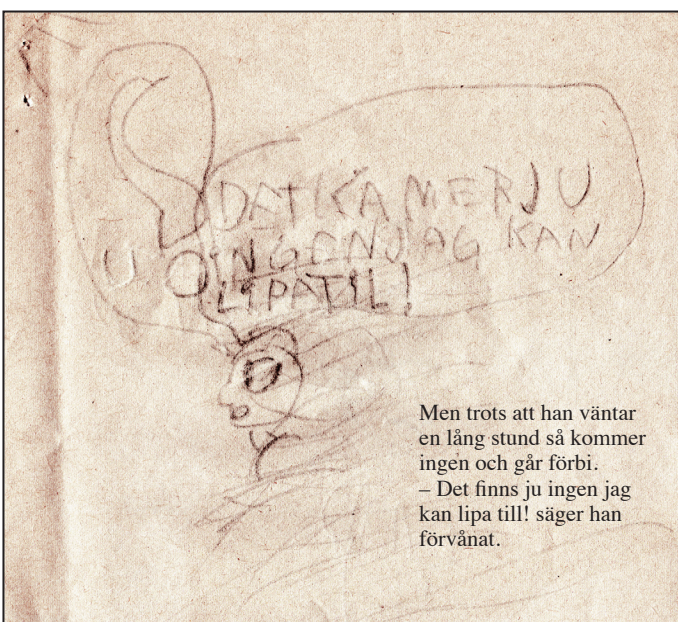 DATKAMERJU
INGENJAG KAN
LIPATIL!
Men trots att han väntar
en lång stund så kommer
ingen och går förbi.
– Det finns ju ingen jag
kan lipa till! säger han
förvånat.